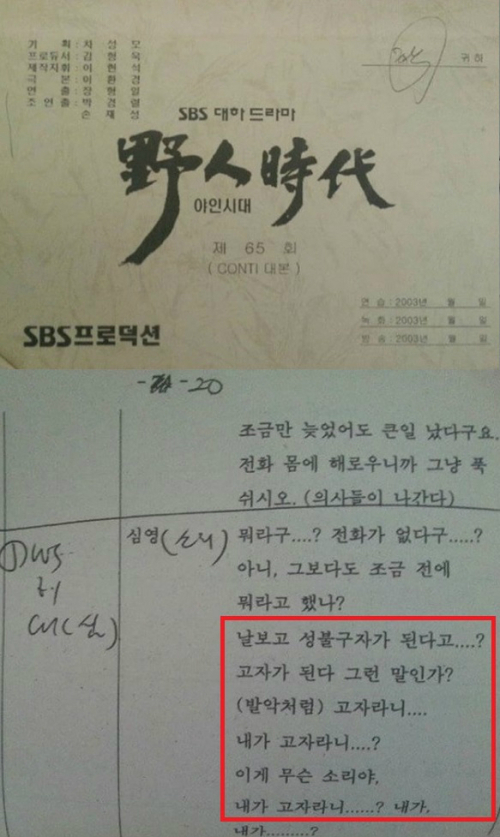 기 획 : 차 성 모
프로듀서 : 김 형 욱
제작지휘 : 이 현 석
극 본 : 이 환 경
연 출 : 장 형 일
조 연 출 : 박 경 렬
손 재 성
귀 하
SBS 대하 드라마
野人時代
야인시대
제 65 회
( CONTI 대본 )
연 습 : 2003년 월 일
녹 화 : 2003년 월 일
방 송 : 2003년 월 일
SBS프로덕션
-20
조금만 늦었어도 큰일 났다구요.
전화 몸에 해로우니까 그냥 푹
쉬시오. (의사들이 나간다)
심영 뭐라구....? 전화가 없다구.....?
아니, 그보다도 조금 전에
뭐라고 했나?
날보고 성불구자가 된다고....?
고자가 된다 그런 말인가?
(발악처럼) 고자라니....
내가 고자라니....?
이게 무슨 소리야,
내가 고자라니......? 내가,
내가.........?